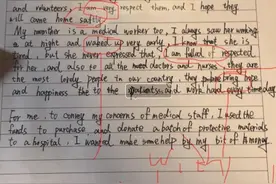 and volunteers, I am very respect them, and I hope they
will come home safely.
My monther is a medical worker too, I always saw her working
at night and waked up very early. I know that she is
tired, but she never expressed that, I am fulled if respected
for her, and also to all the doctors and nurses, they are
the most lovely people in our country, they bring hope
and happiness to the patients with hard every time day
For me, to convey my concerns of medical staff, I used the
funds to purchase and donate a batch of protective materials
to a hospital. I wanted make some help by my bit of